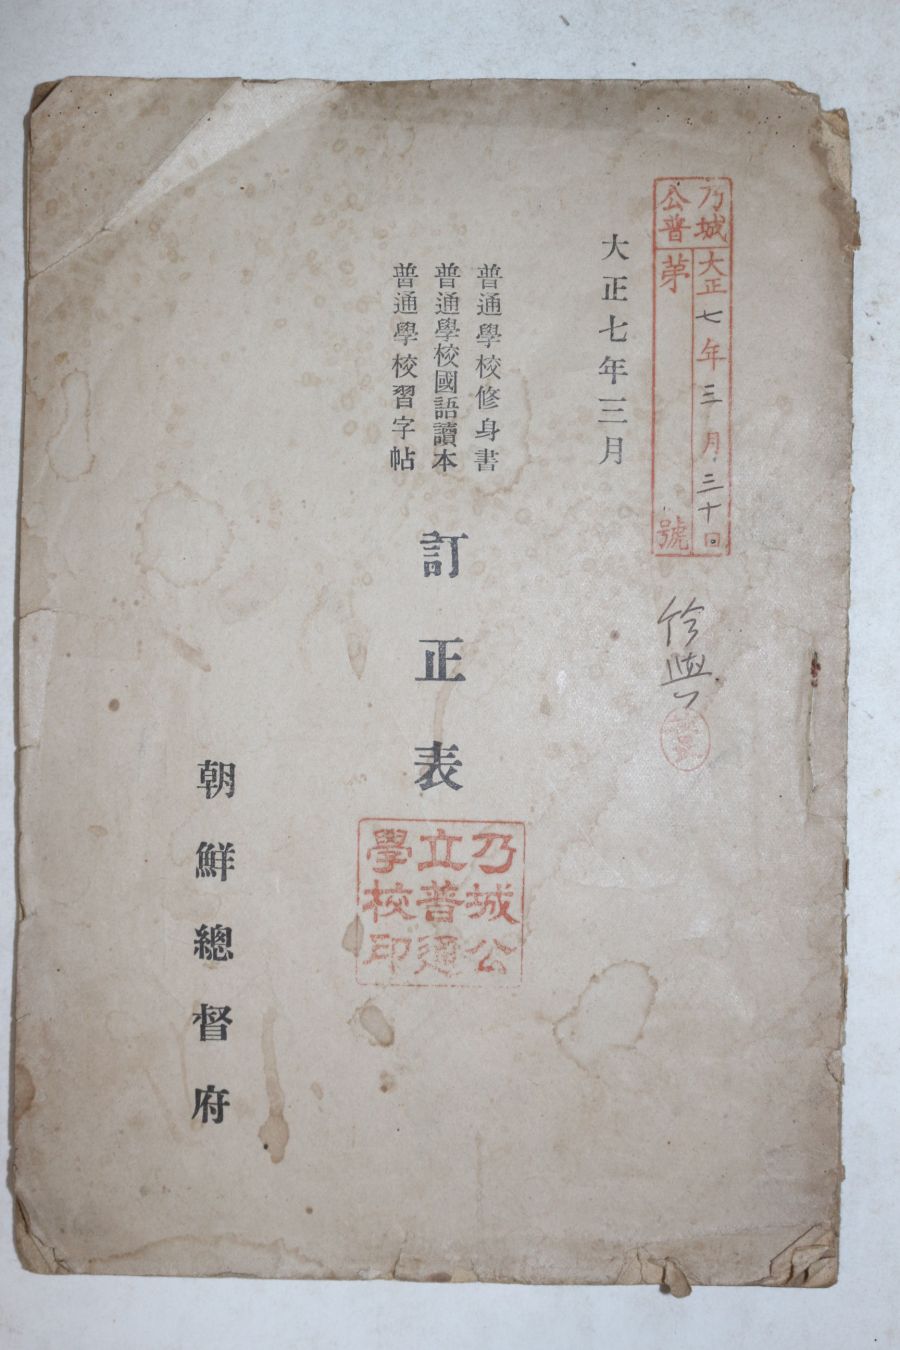 乃城
公普
大正七年三月三十日
第
號
大正七年三月
普通學校修身書
普通學校國語讀本
普通學校習字帖
訂正表
乃城公
立普通
學校印
朝鮮總督府